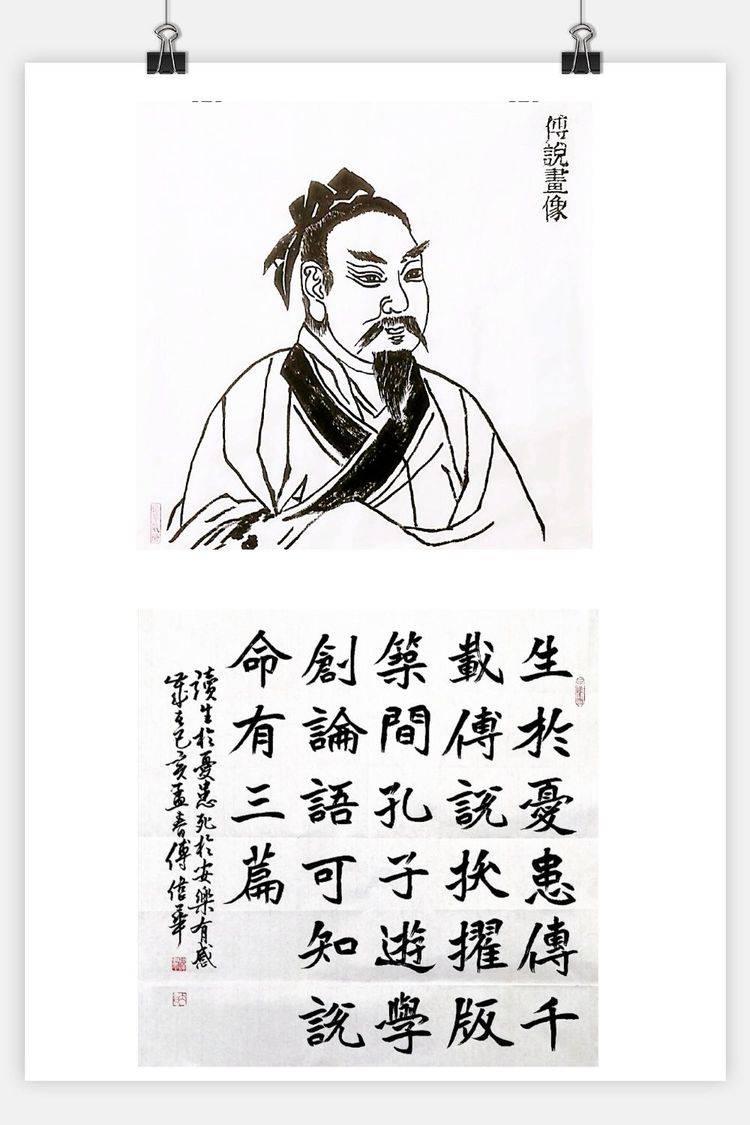 傅說畫像
生於憂患傳千
載傅說擢版
築間孔子遊學
創論語可知說
命有三篇
讀生於憂患死於安樂有感
歲在己亥孟春傅信華